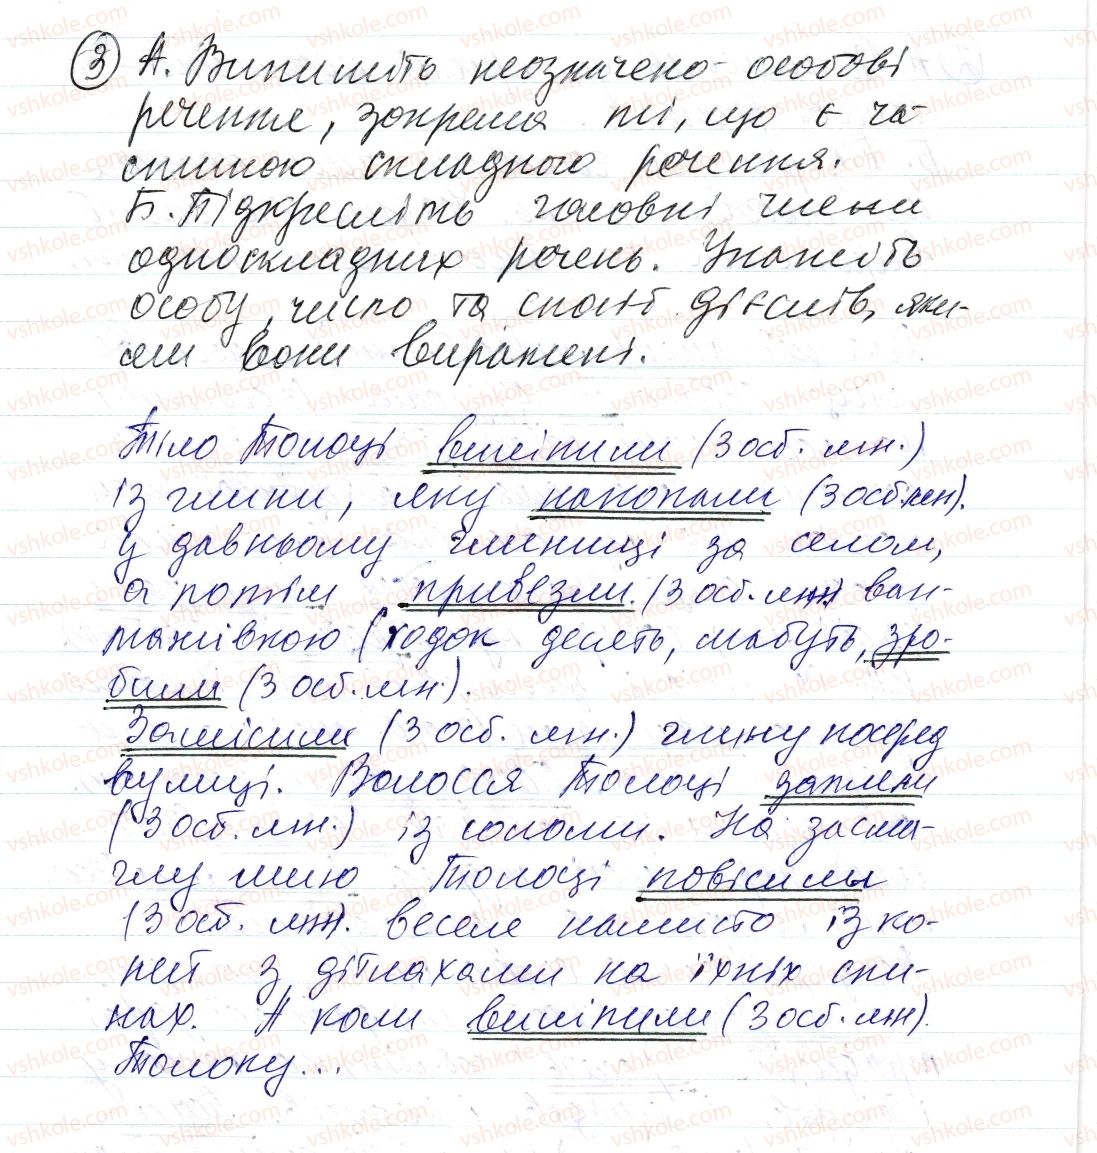 3 А. Випишіть неозначено-особові
речення, зокрема ті, що є ча-
стиною складного речення.
Б. Підкресліть головні члени
односкладних речень. Укажіть
особу, число та спосіб дієслів, яки-
ми вони виражені.
Тіло Толоці виліпили (3 ос. мн.)
із глини, яку накопали (3 ос. мн).
у давньому глинищі за селом,
а потім привезли (3 ос. мн) ван-
тажівкою (ходок десять, мабуть, зро-
били (3 ос. мн.).
Замісили (3 ос. мн.) глину посеред
вулиці. Волосся Толоці заплели
(3 ос. мн.) із соломи. На засма-
глу шию Толоці повісили
(3 ос. мн). веселе намисто із ко-
нет з дітлахами на їхніх спи-
нах. А коли виліпили (3 ос. мн).
Толоку...